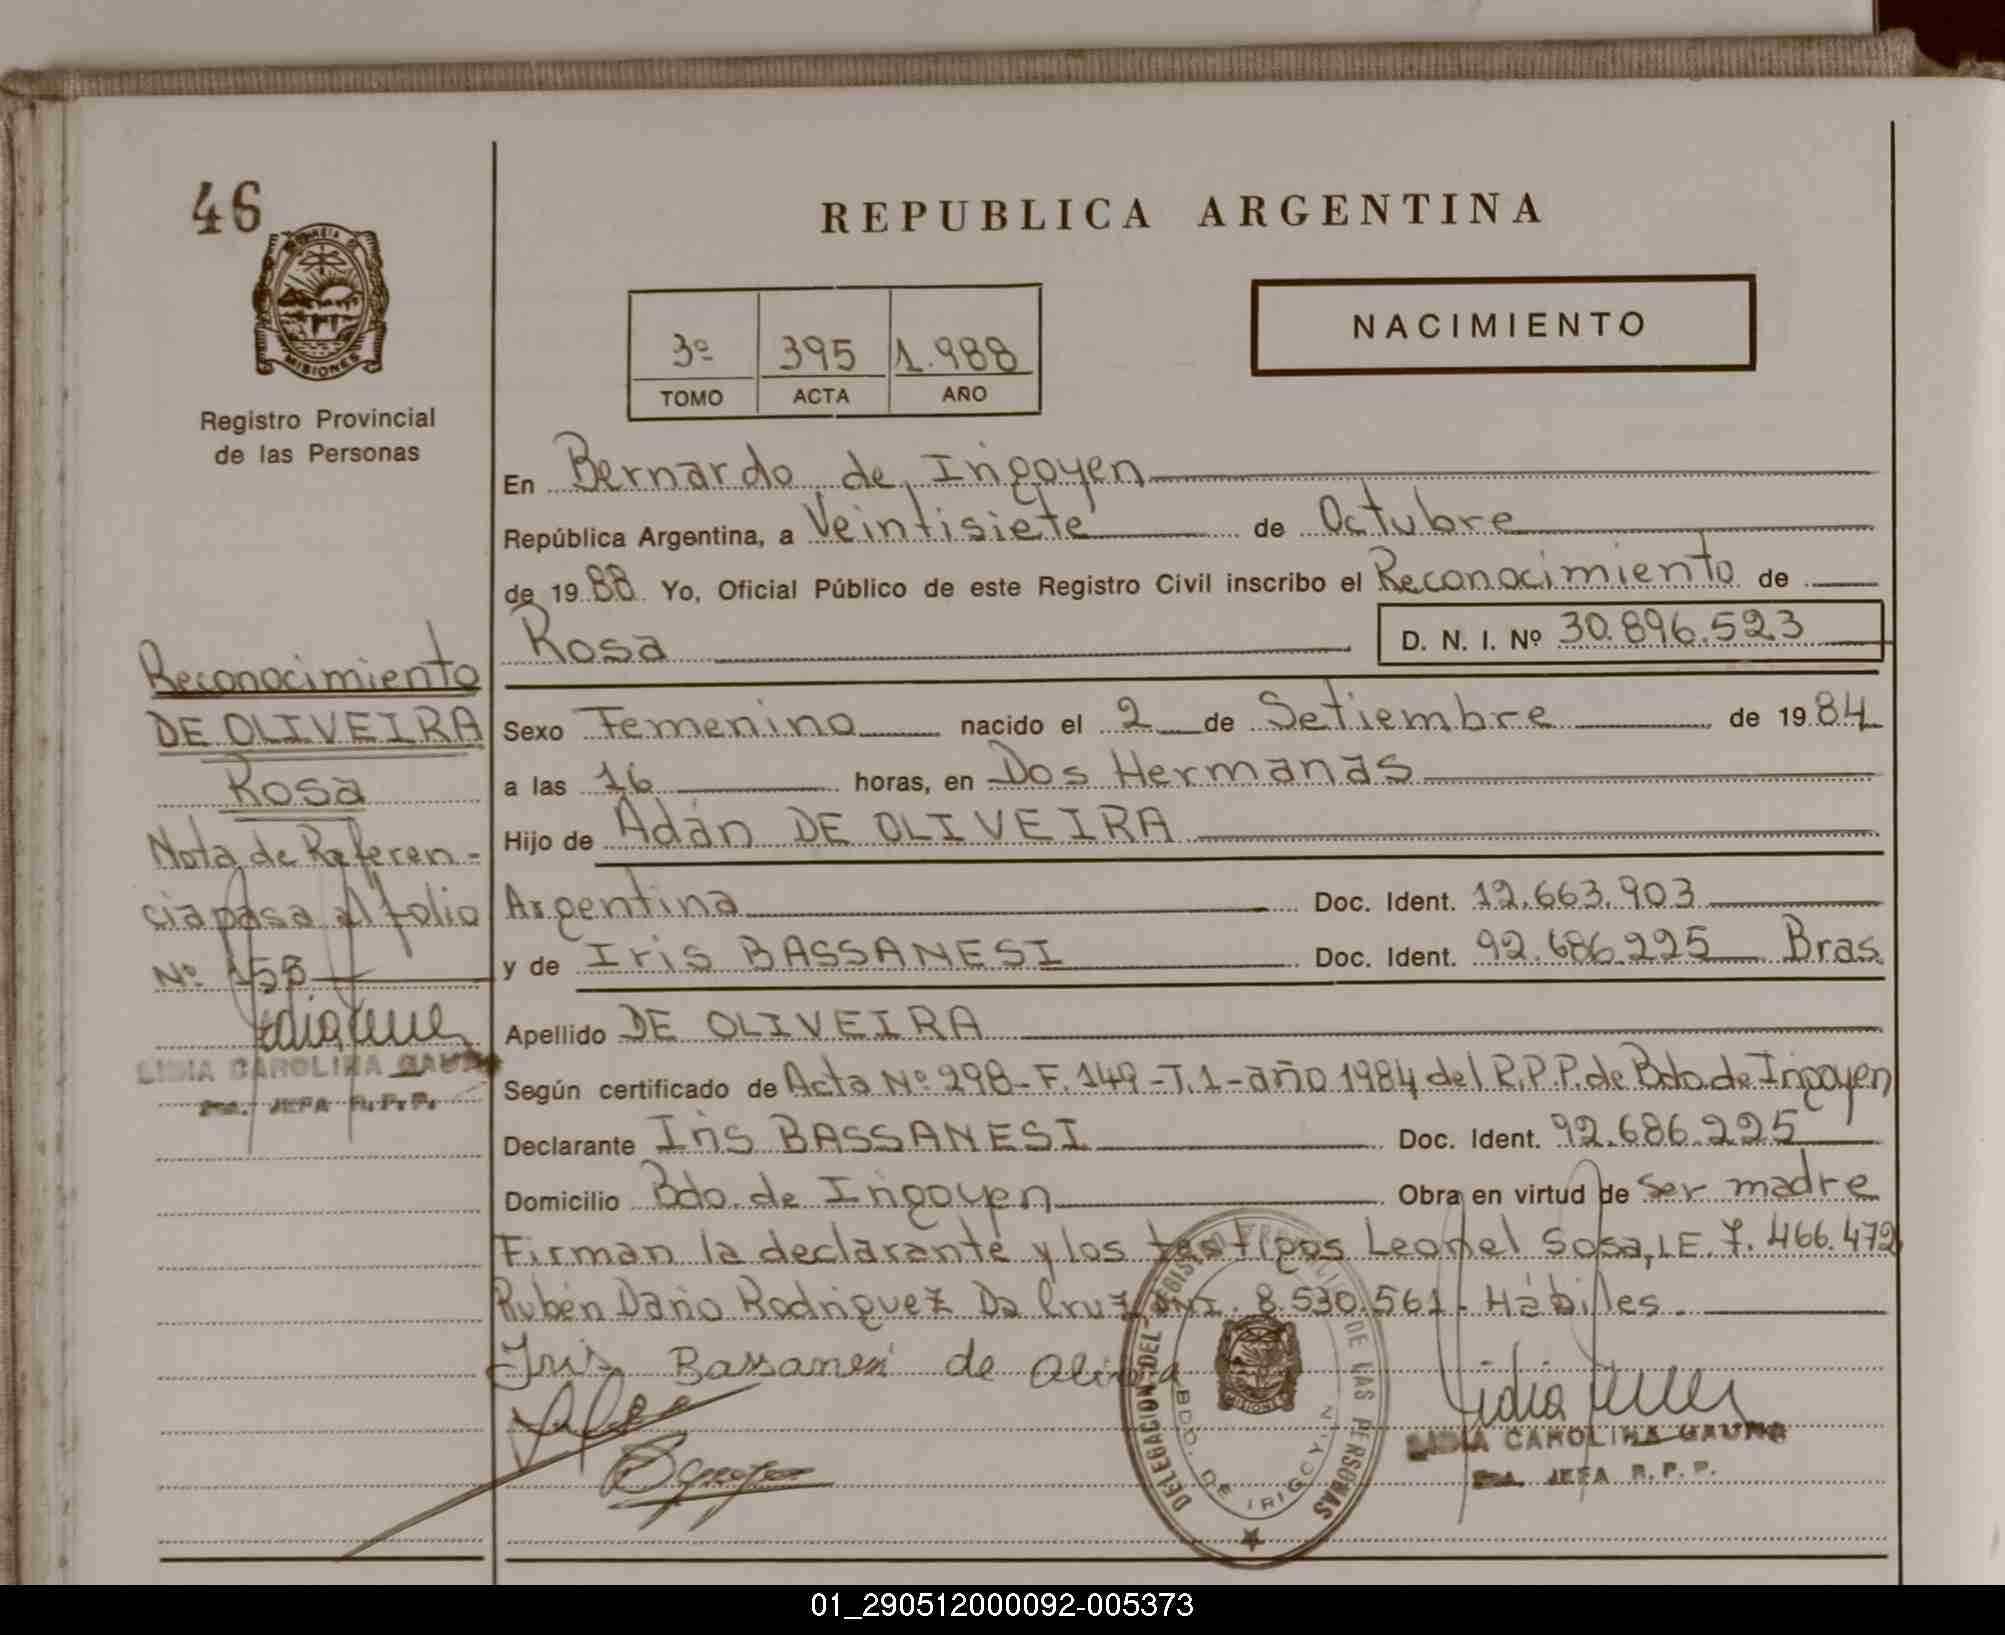 46
REPUBLICA ARGENTINA
PROVINCIA DE
MISIONES
Registro Provincial
de las Personas
3º 395 1.988
TOMO ACTA AÑO
NACIMIENTO
En Bernardo de Irigoyen
República Argentina, a Veintisiete de Octubre
de 1988 Yo, Oficial Público de este Registro Civil inscribo el Reconocimiento de
Rosa D. N. I. Nº 30.896.523
Sexo Femenino nacido el 2 de Setiembre de 1984
a las 16 horas, en Dos Hermanas
Hijo de Adán DE OLIVEIRA
Argentina Doc. Ident. 12.663.903
y de Iris BASSANESI Doc. Ident. 92.686.225 Bras.
Apellido DE OLIVEIRA
Según certificado de Acta Nº 298-F.149-T.1-año 1984 del R.P.P. de Bdo. de Irigoyen
Declarante Iris BASSANESI Doc. Ident. 92.686.225
Domicilio Bdo. de Irigoyen Obra en virtud de ser madre
Firman la declarante y los testigos Leonel Sosa, LE. 7.466.472
Rubén Darío Rodriguez Da Cruz DNI. 8.530.561. Hábiles.
Iris Bassanesi de Olivera
Reconocimiento
DE OLIVEIRA
Rosa
Nota de Referen-
cia pasa al folio
Nº 153
LIDIA CAROLINA GAUNA
JEFA R.P.P.
DELEGACION DEL REGISTRO PROVINCIAL DE LAS PERSONAS
BDO. DE IRIGOYEN
MISIONES
LIDIA CAROLINA GAUNA
JEFA R.P.P.
01_290512000092-005373